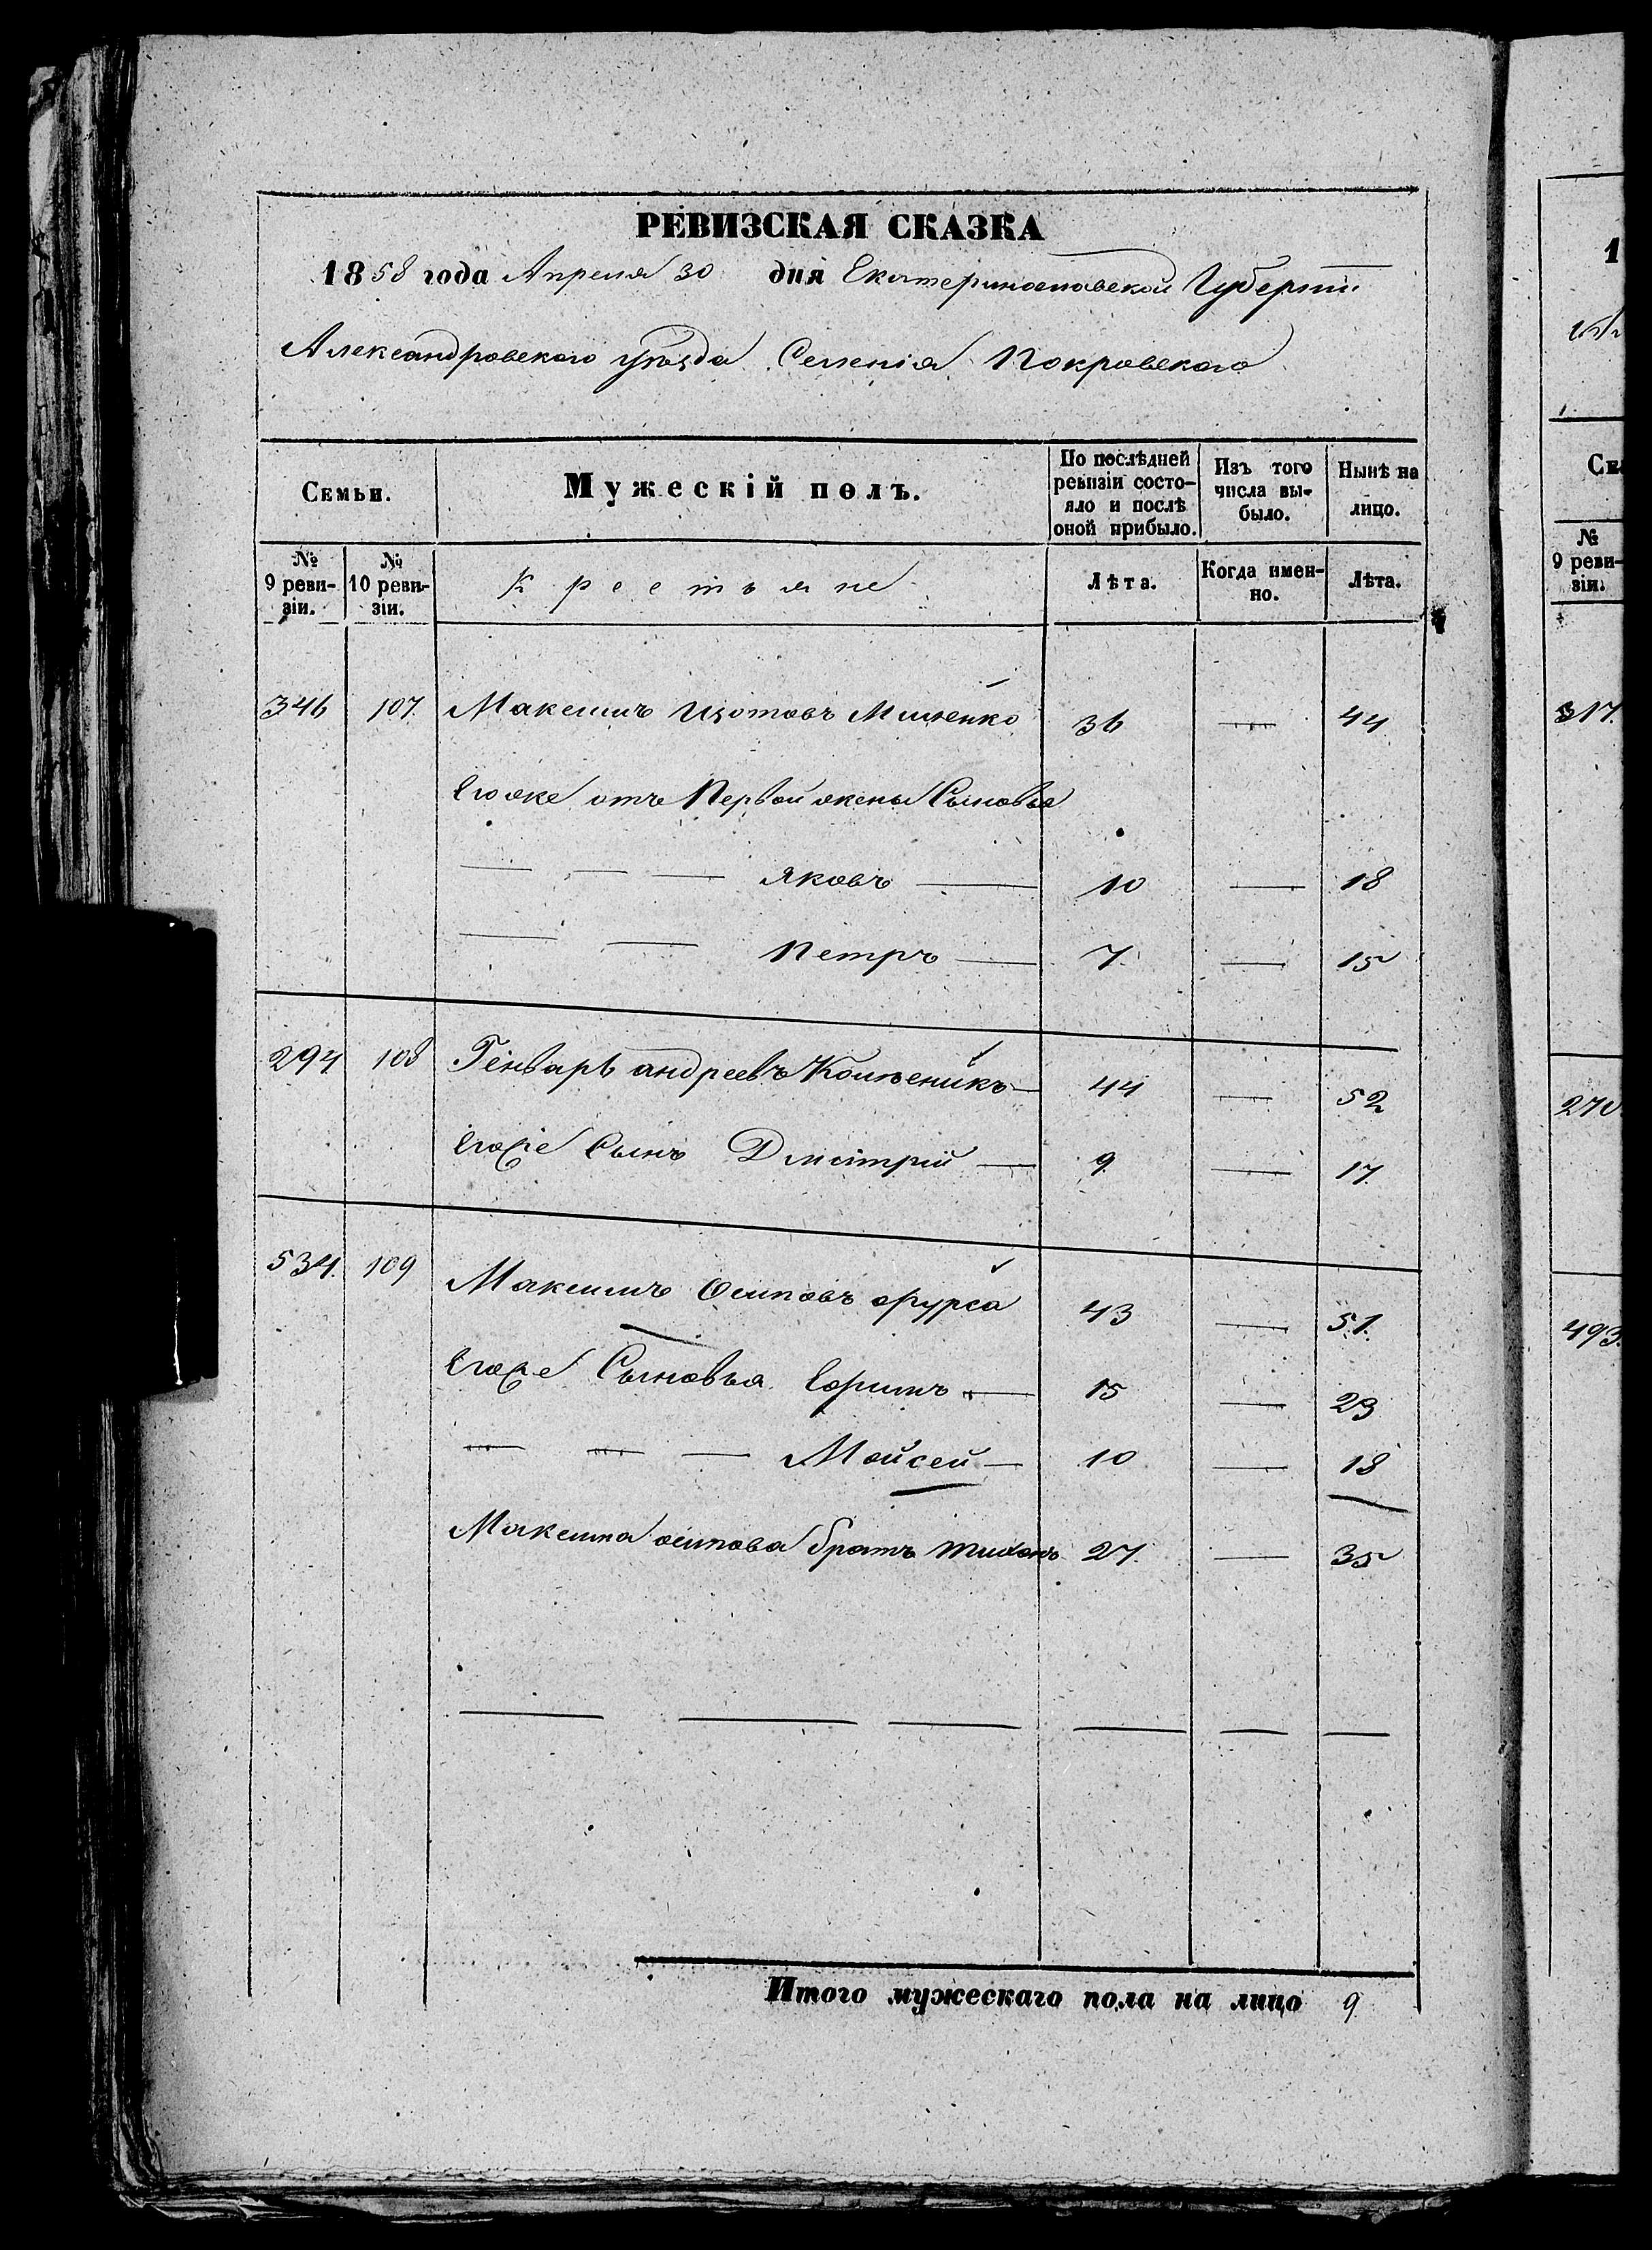 РЕВИЗСКАЯ СКАЗКА
1858 года Апреля 30 дня Екатеринославской Губерніи
Александровского уѣзда Селенія Покровского
Семьи. Мужескій полъ. По послѣдней ревизіи состояло и послѣ оной прибыло. Изъ того числа выбыло. Нынѣ на лицо.
№ 9 ревизіи. № 10 ревизіи. Крестьяне Лѣта. Когда именно. Лѣта.
346 107. Максимъ Изотовъ 36 — 44
Егоже отъ Первой жены Сыновья
— — — Яковъ — 10 — 18
— — Петръ — 7. — 15
294 108 Генварь андреевъ 44 — 52
Егоже Сынъ Дмитрій — 9. — 17.
534. 109 Максимъ Осиповъ фурса 43 — 51.
Егоже Сыновья Ефимъ — 15 — 23
— — — Мойсей — 10 — 18
Максима осипова братъ тихонъ 27. — 35
— — — — — —
Итого мужескаго пола на лицо 9.
1
Се
№ 9 ревизіи.
317.
270
493.